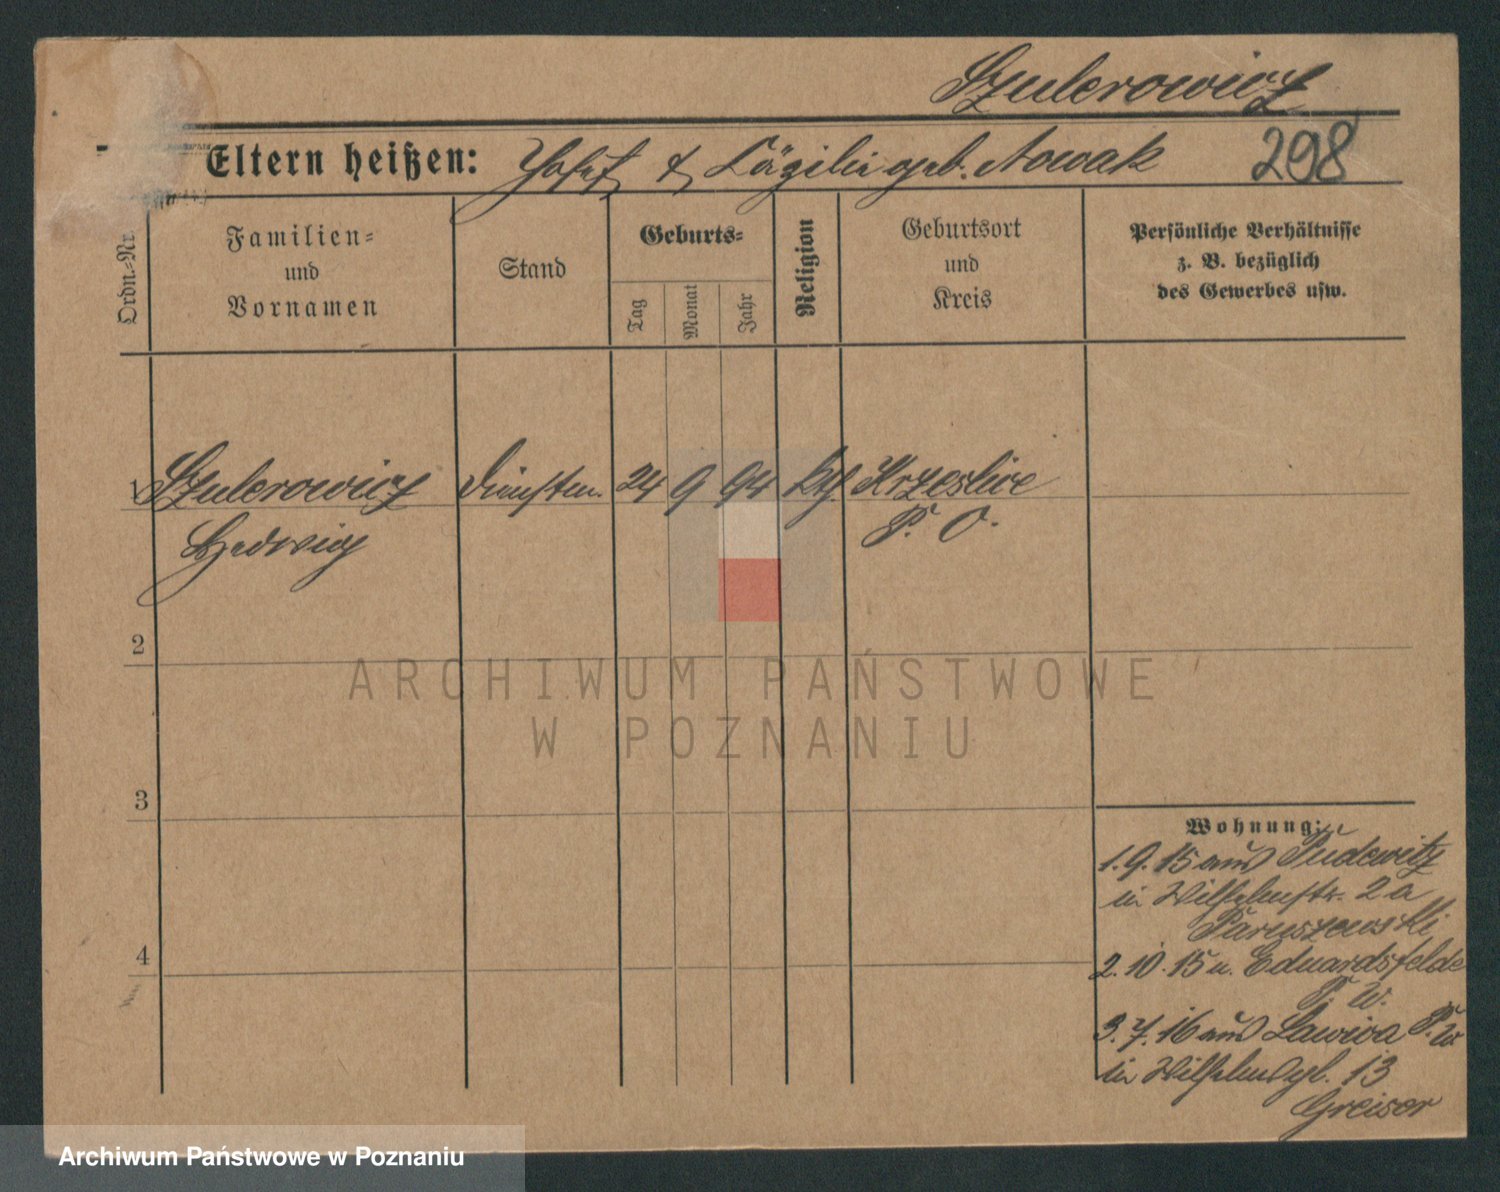 Szulerowicz
Eltern heißen: Josef & Cäzilie geb. Nowak
298
Ordn.-Nr.
Familien-
und
Vornamen
Stand
Geburts-
Tag
Monat
Jahr
Religion
Geburtsort
und
Kreis
Persönliche Verhältnisse
z. B. bezüglich
des Gewerbes usw.
1 Szulerowicz Dienstm. 24 9 94 kth Krzeslice
Hedwig P. O.
2
3
4
Wohnung:
1. 9. 15 aus Pudewitz
in Wilhelmstr. 2 a
Paruszewski
2. 10. 15 n. Eduardsfelde
P. W.
3. 7. 16 aus Lawica P. W
in Wilhelmspl. 13
Greiser
ARCHIWUM PAŃSTWOWE
W POZNANIU
Archiwum Państwowe w Poznaniu